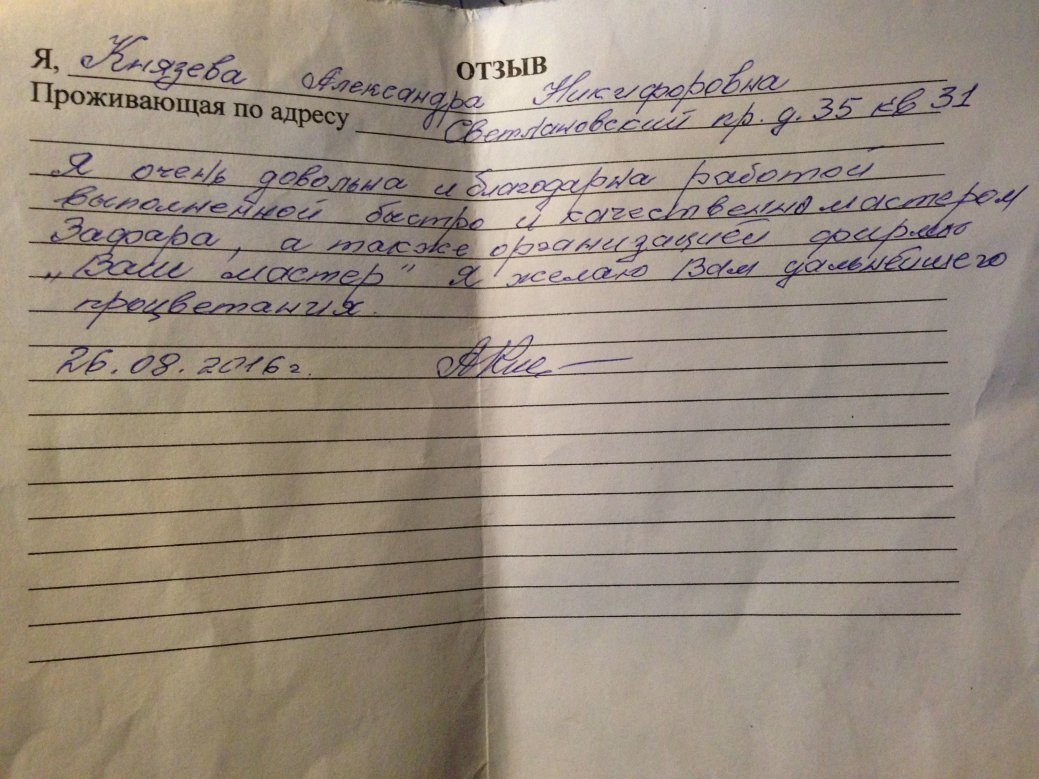 ОТЗЫВ
Я, Князева Александра Никифоровна
Проживающая по адресу Светлановский пр. д. 35 кв 31
Я очень довольна и благодарна работой
выполненной быстро и качественно мастером
Зафара, а также организацией фирмы
„Ваш мастер" Я желаю Вам дальнейшего
процветания.
26.08.2016г.